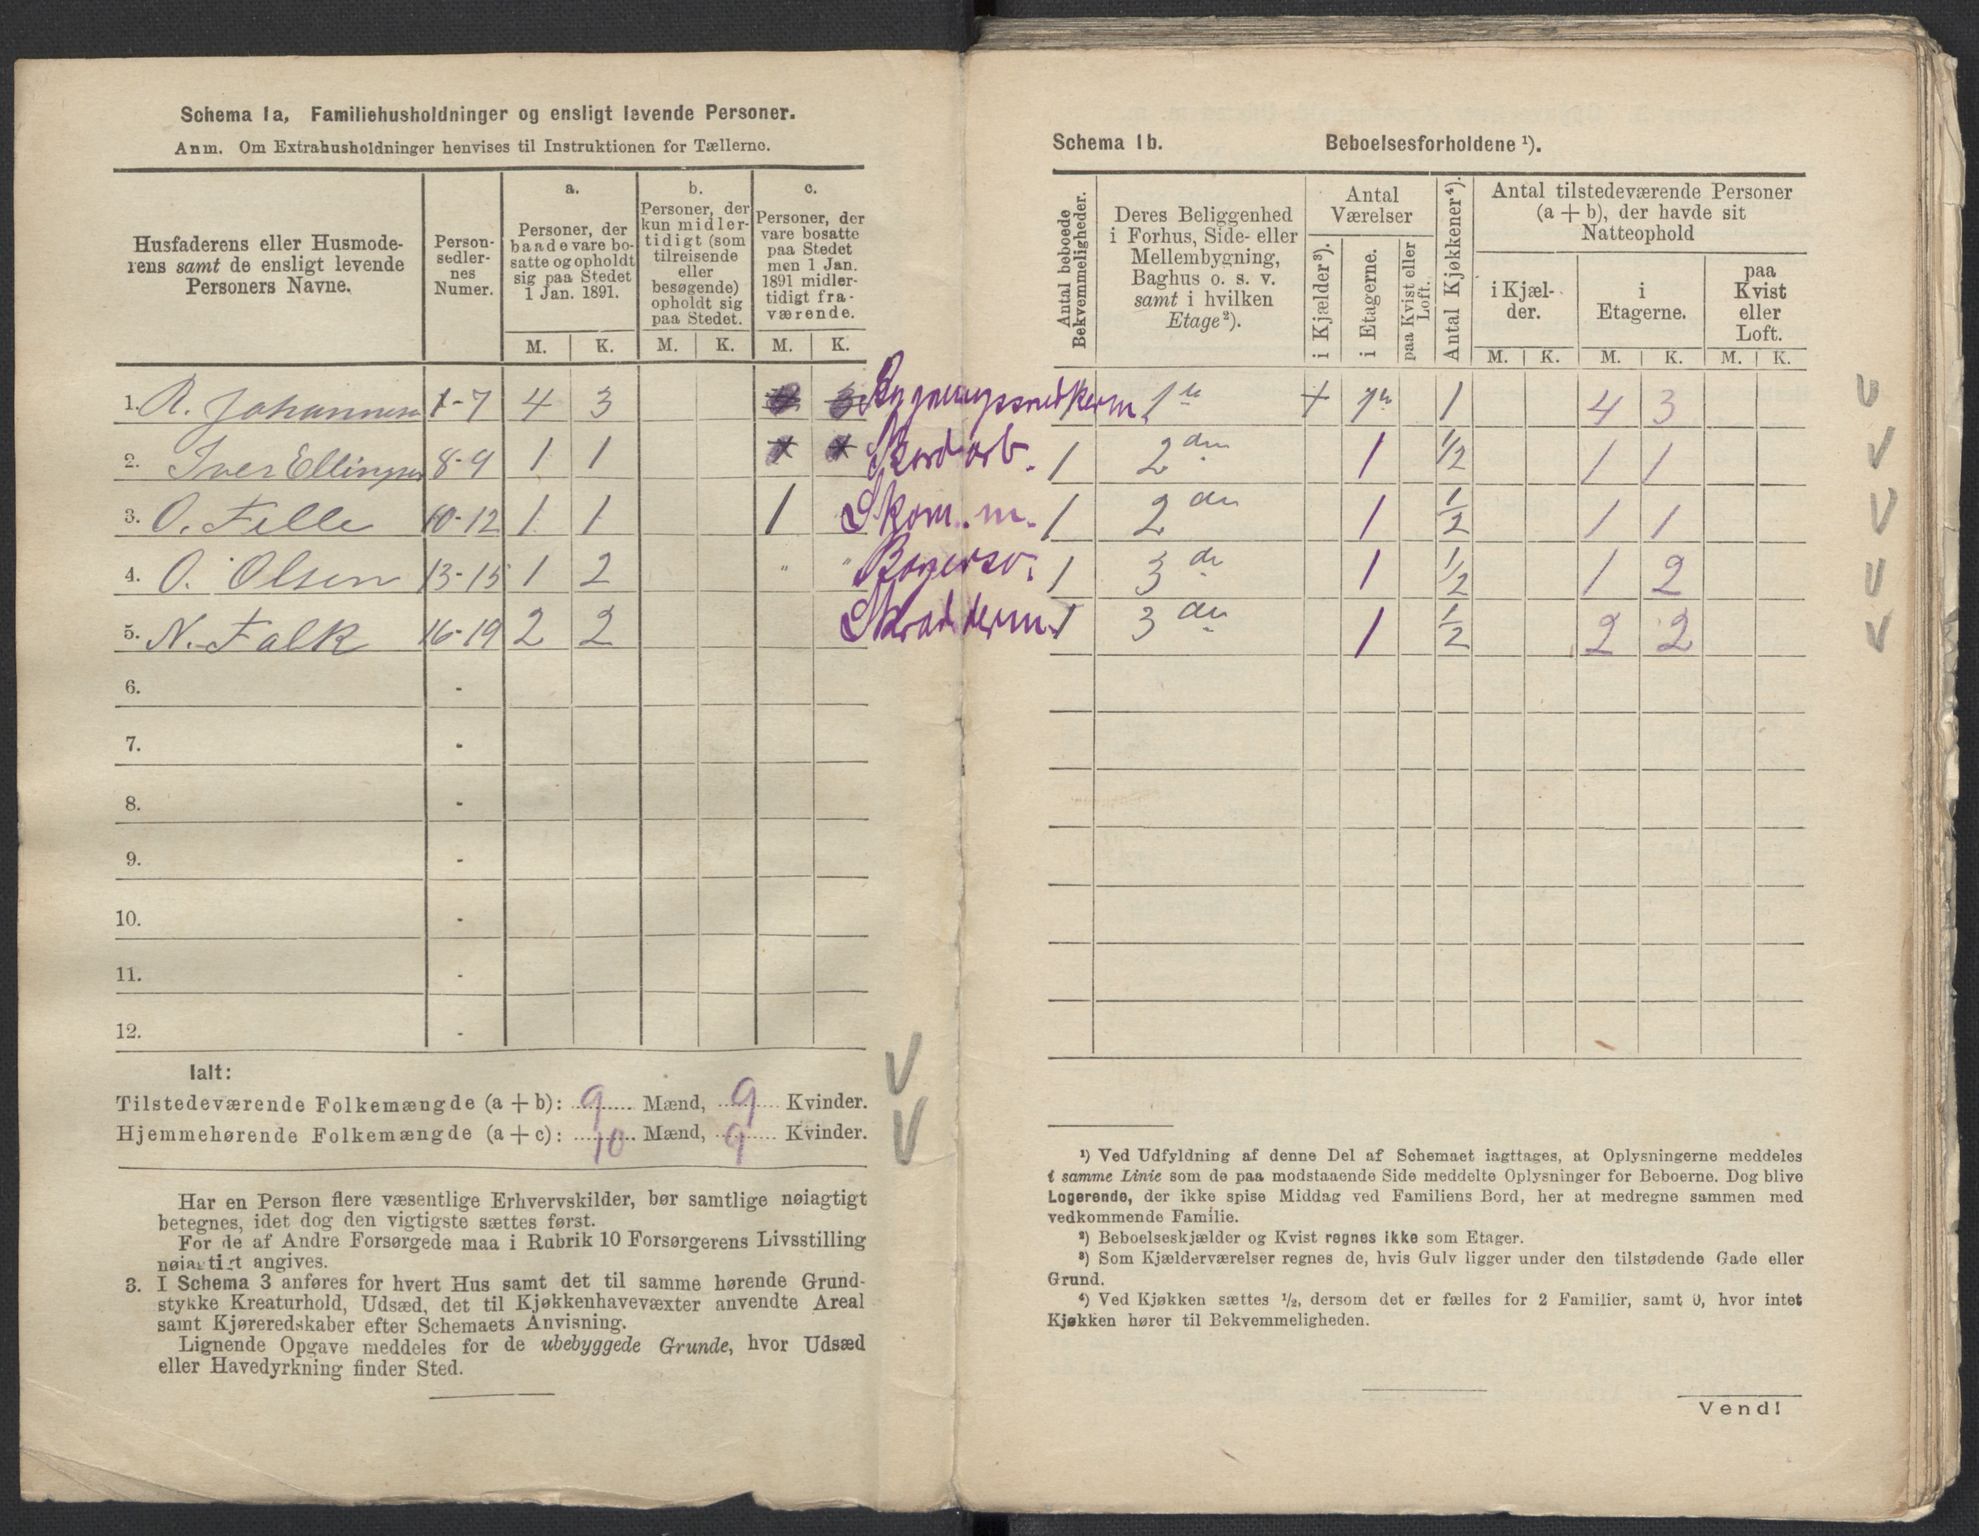 Schema 1a, Familiehusholdninger og ensligt levende Personer.
Anm. Om Extrahusholdninger henvises til Instruktionen for Tællerne.
Husfaderens eller Husmoderens samt de ensligt levende Personers Navne.
Person-sedlernes Numer.
a.
Personer, der baade vare bosatte og opholdt sig paa Stedet 1 Jan. 1891.
b.
Personer, der kun midlertidigt (som tilreisende eller besøgende) opholdt sig paa Stedet.
c.
Personer, der vare bosatte paa Stedet men 1 Jan. 1891 midlertidigt fraværende.
M. K. M. K. M. K.
1. R. Johannesen 1-7 4 3
2. Iver Ellingsen 8-9 1 1
3. O. Fille 10-12 1 1 1 Skom.m.
4. O. Olsen 13-15 1 2 " "
5. N. Falk 16-19 2 2 Skrædderm.
6. -
7. -
8. -
9. -
10. -
11. -
12. -
Ialt:
Tilstedeværende Folkemængde (a + b): 9 Mænd, 9 Kvinder.
Hjemmehørende Folkemængde (a + c): 10 Mænd, 9 Kvinder.
Har en Person flere væsentlige Erhvervskilder, bør samtlige nøiagtigt
betegnes, idet dog den vigtigste sættes først.
For de af Andre Forsørgede maa i Rubrik 10 Forsørgerens Livsstilling
nøiagtigt angives.
3. I Schema 3 anføres for hvert Hus samt det til samme hørende Grund-
stykke Kreaturhold, Udsæd, det til Kjøkkenhavevæxter anvendte Areal
samt Kjøreredskaber efter Schemaets Anvisning.
Lignende Opgave meddeles for de ubebyggede Grunde, hvor Udsæd
eller Havedyrkning finder Sted.
Schema 1b. Beboelsesforholdene ¹).
Antal beboede Bekvemmeligheder.
Deres Beliggenhed i Forhus, Side- eller Mellembygning, Baghus o. s. v. samt i hvilken Etage²).
Antal Værelser
i Kjælder³).
i Etagerne.
paa Kvist eller Loft.
Antal Kjøkkener⁴).
Antal tilstedeværende Personer (a + b), der havde sit Natteophold
i Kjælder.
i Etagerne.
paa Kvist eller Loft.
M. K. M. K. M. K.
1 4 3
1 2den 1 1/2 1 1
1 2den 1 1/2 1 1
1 3de 1 1/2 1 2
1 3de 1 1/2 2 2
¹) Ved Udfyldning af denne Del af Schemaet iagttages, at Oplysningerne meddeles
i samme Linie som de paa modstaaende Side meddelte Oplysninger for Beboerne. Dog blive
Logerende, der ikke spise Middag ved Familiens Bord, her at medregne sammen med
vedkommende Familie.
²) Beboelseskjælder og Kvist regnes ikke som Etager.
³) Som Kjælderværelser regnes de, hvis Gulv ligger under den tilstødende Gade eller
Grund.
⁴) Ved Kjøkken sættes ½, dersom det er fælles for 2 Familier, samt 0, hvor intet
Kjøkken hører til Bekvemmeligheden.
Vend!